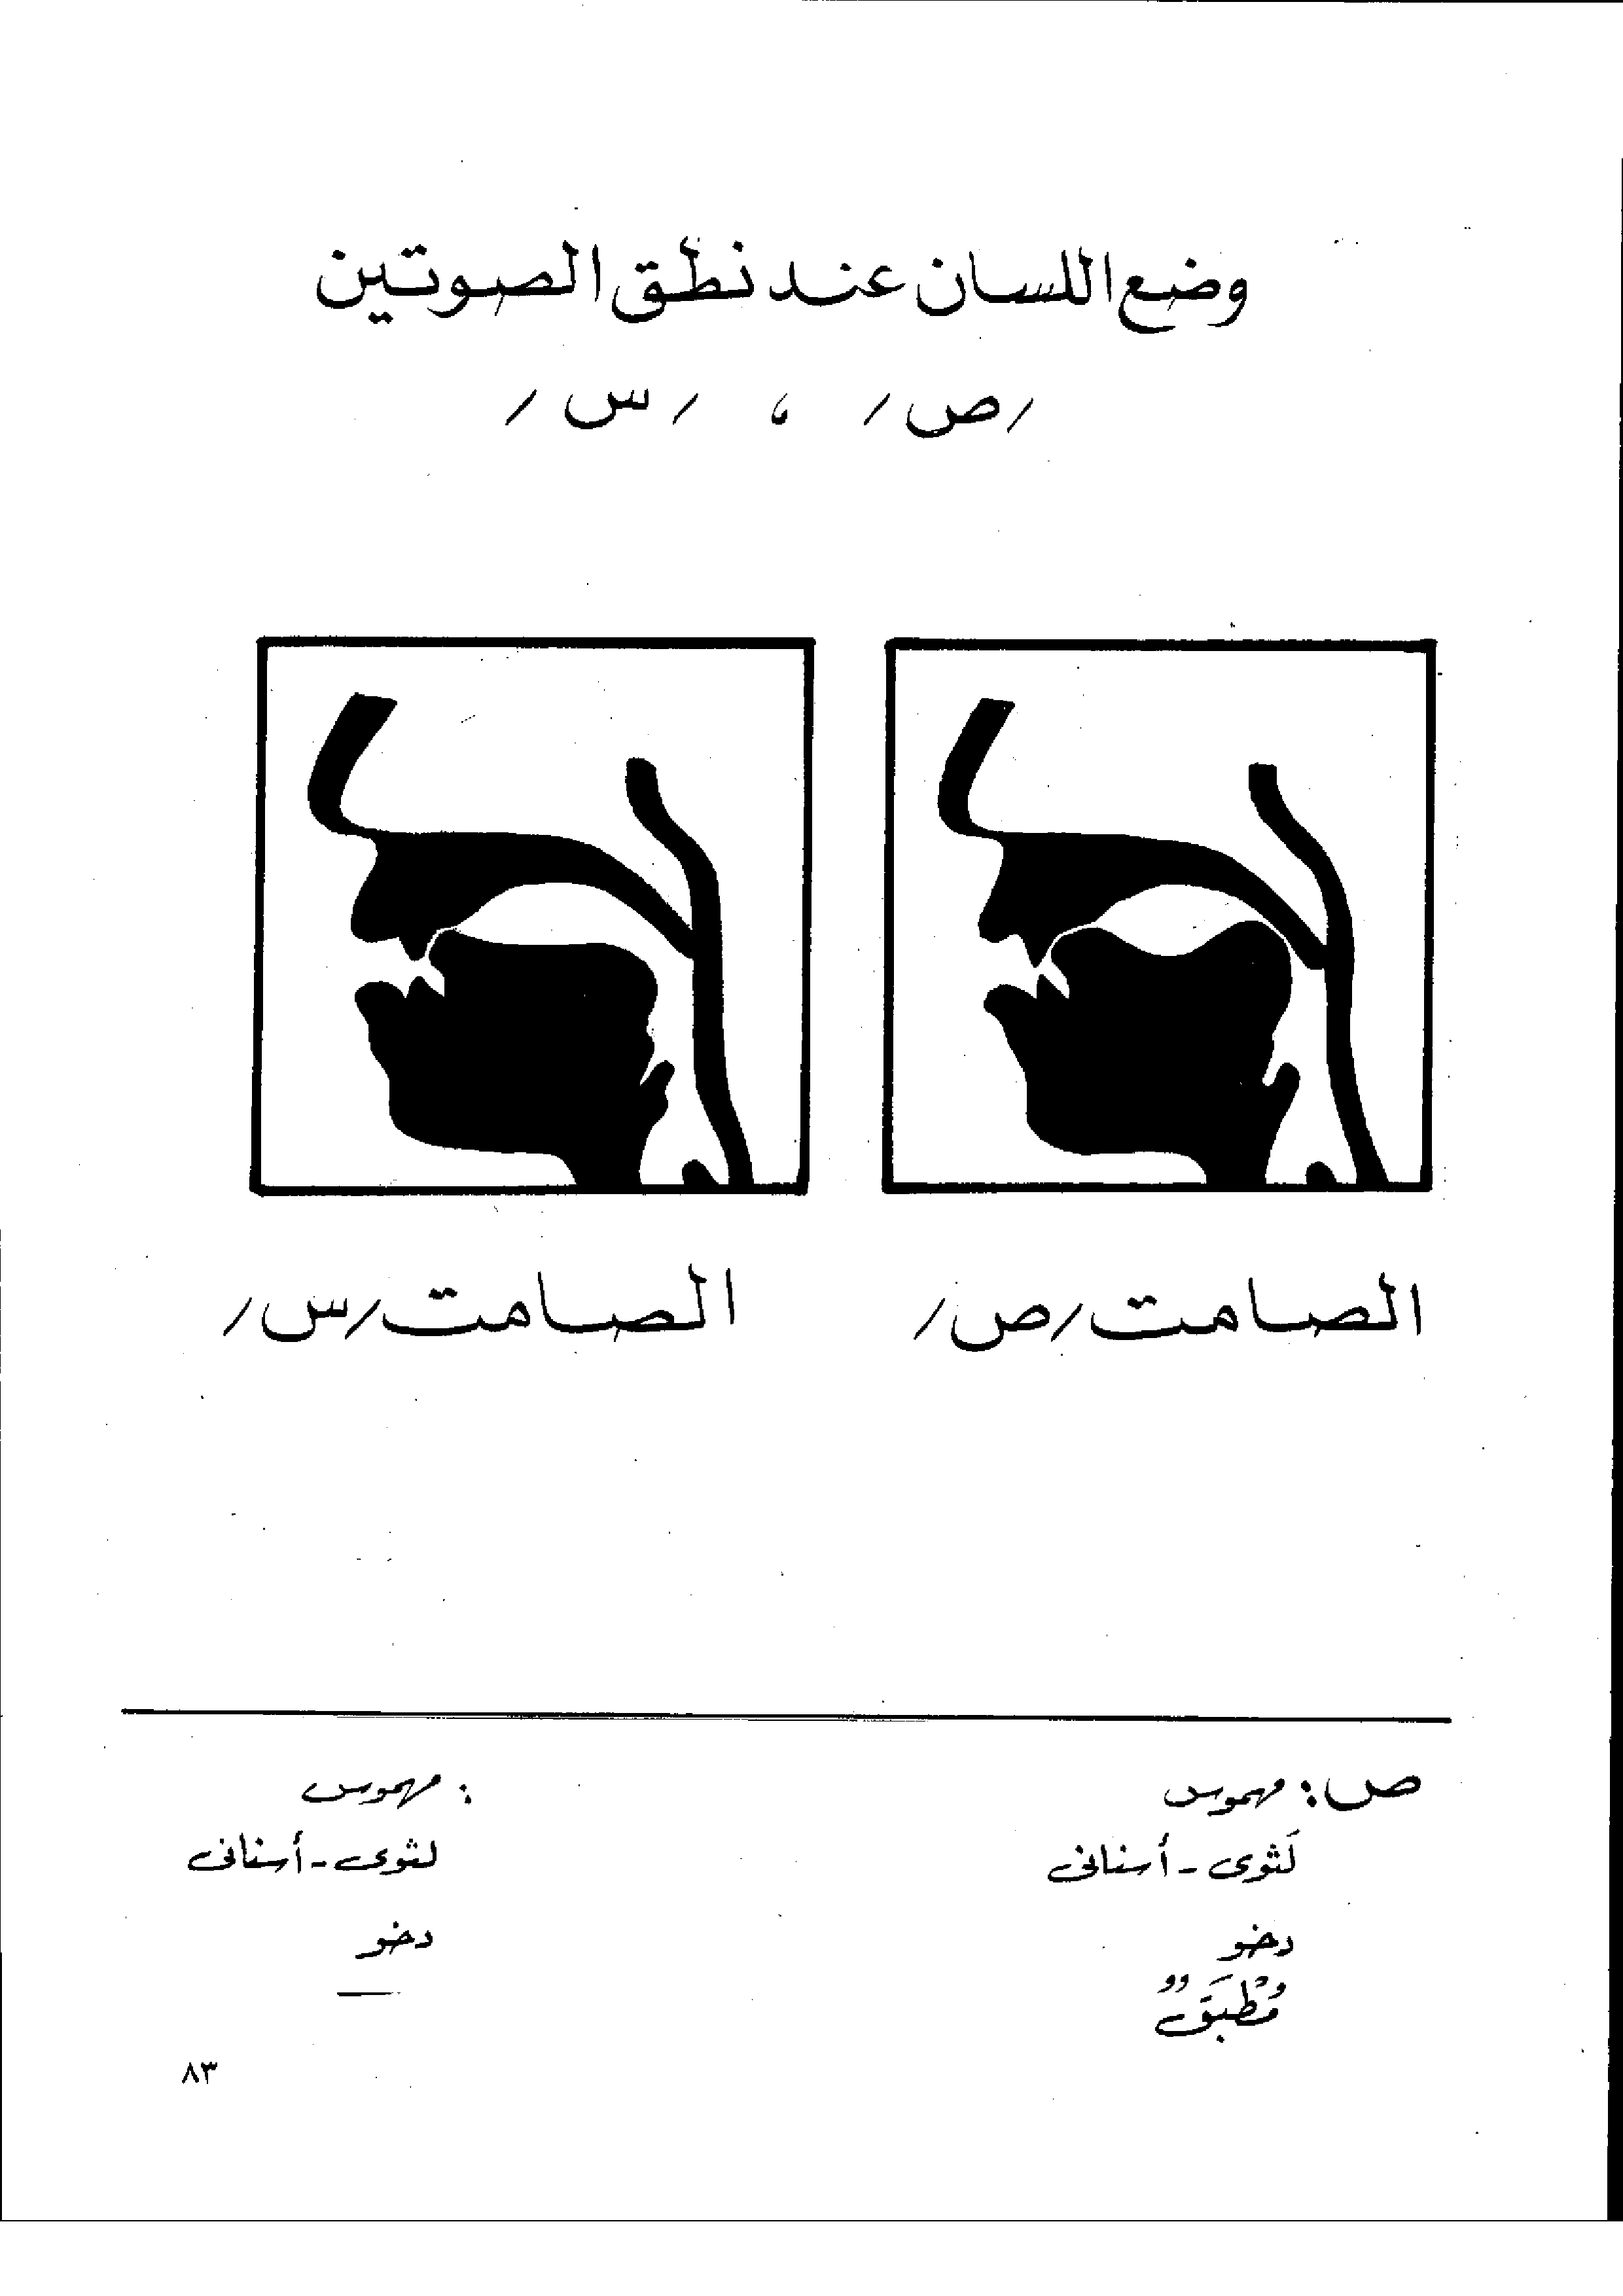 وضع اللسان عند نطق الصوتين
/ص/ ، /س/
الصامت /ص/
الصامت /س/
ص : مهموس
لَثوى - أسنانى
رخو
مُطْبَقٌ
: مهموس
لثوى - أسنانى
رخو
—
٨٣